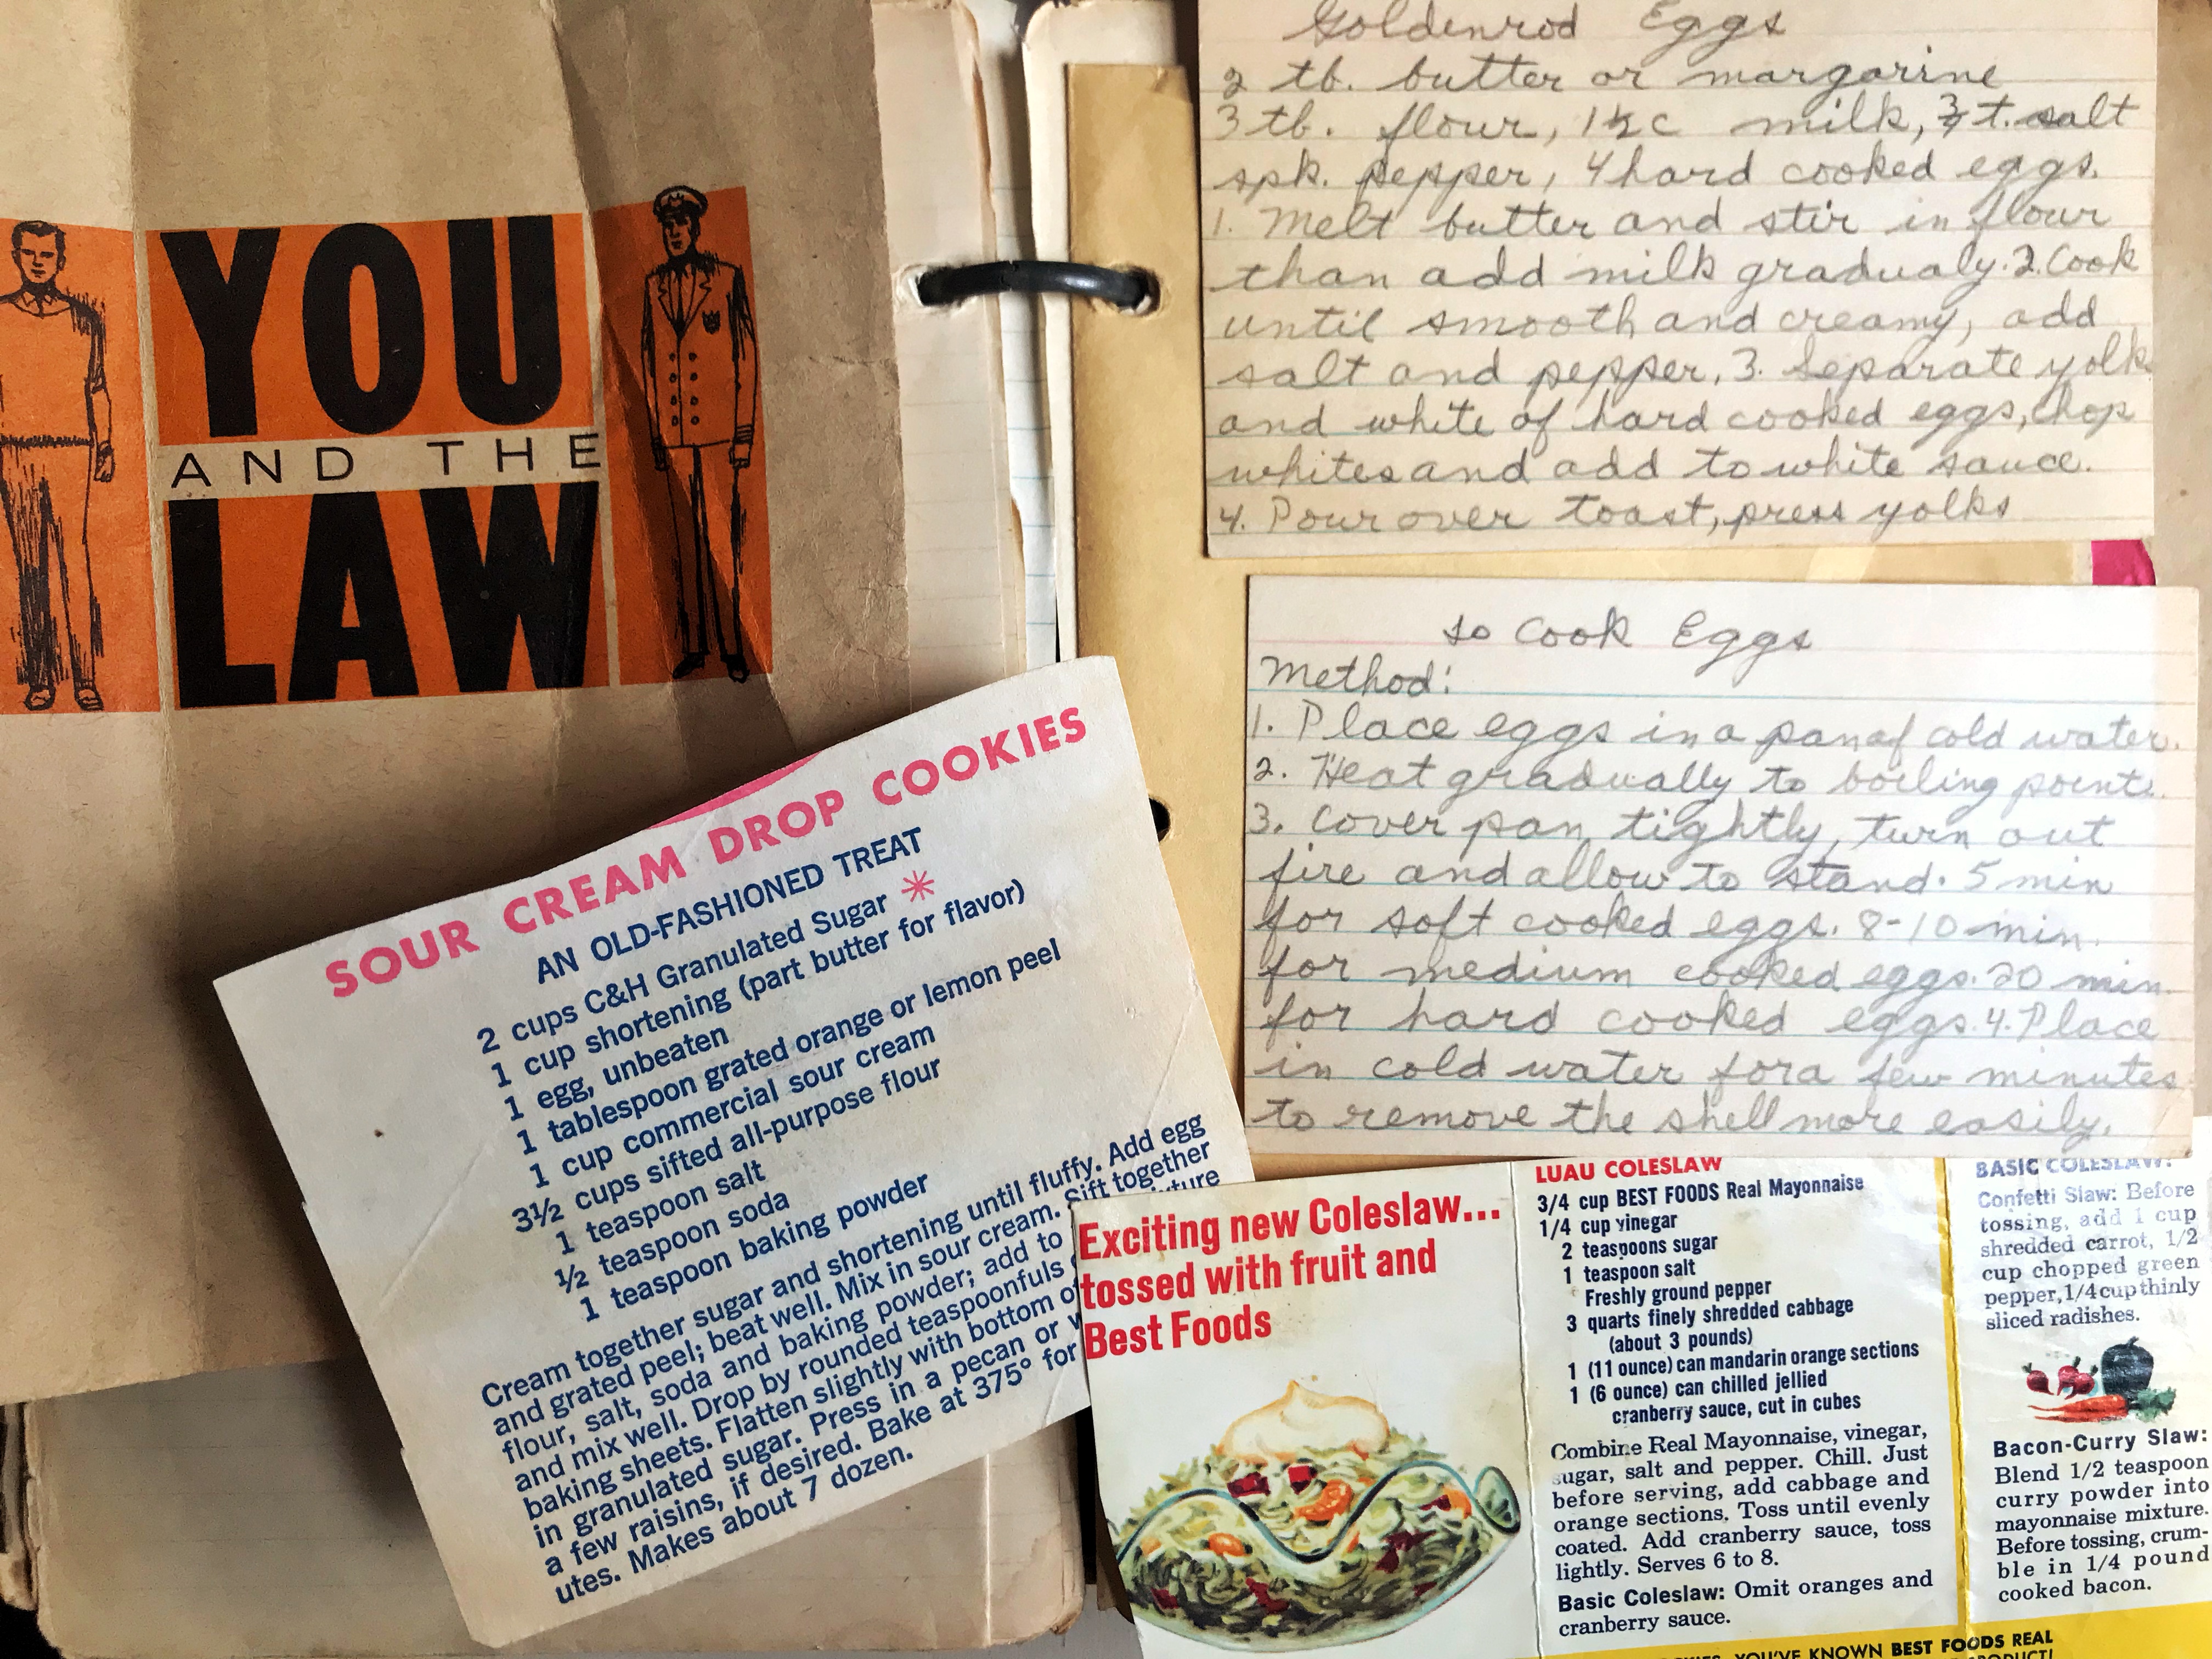 YOU
AND THE
LAW
Goldenrod Eggs
2 tb. butter or margarine
3 tb. flour, 1½ c milk, ¾ t. salt
spk. pepper, 4 hard cooked eggs.
1. Melt butter and stir in flour
than add milk gradualy. 2. Cook
until smooth and creamy, add
salt and pepper, 3. Separate yolk
and white of hard cooked eggs, chop
whites and add to white sauce.
4. Pour over toast, press yolks
to Cook Eggs
Method:
1. Place eggs in a pan of cold water.
2. Heat gradually to boiling point.
3. Cover pan tightly, turn out
fire and allow to stand. 5 min
for soft cooked eggs. 8-10 min.
for medium cooked eggs. 20 min.
for hard cooked eggs. 4. Place
in cold water for a few minutes
to remove the shell more easily.
SOUR CREAM DROP COOKIES
AN OLD-FASHIONED TREAT
2 cups C&H Granulated Sugar *
1 cup shortening (part butter for flavor)
1 egg, unbeaten
1 tablespoon grated orange or lemon peel
1 cup commercial sour cream
3½ cups sifted all-purpose flour
1 teaspoon salt
½ teaspoon soda
1 teaspoon baking powder
Cream together sugar and shortening until fluffy. Add egg
and grated peel; beat well. Mix in sour cream. Sift together
flour, salt, soda and baking powder; add to
and mix well. Drop by rounded teaspoonfuls
baking sheets. Flatten slightly with bottom of
in granulated sugar. Press in a pecan or
a few raisins, if desired. Bake at 375° for
utes. Makes about 7 dozen.
Exciting new Coleslaw...
tossed with fruit and
Best Foods
LUAU COLESLAW
3/4 cup BEST FOODS Real Mayonnaise
1/4 cup vinegar
2 teaspoons sugar
1 teaspoon salt
Freshly ground pepper
3 quarts finely shredded cabbage
(about 3 pounds)
1 (11 ounce) can mandarin orange sections
1 (6 ounce) can chilled jellied
cranberry sauce, cut in cubes
Combine Real Mayonnaise, vinegar,
sugar, salt and pepper. Chill. Just
before serving, add cabbage and
orange sections. Toss until evenly
coated. Add cranberry sauce, toss
lightly. Serves 6 to 8.
Basic Coleslaw: Omit oranges and
cranberry sauce.
BASIC COLESLAW:
Confetti Slaw: Before
tossing, add 1 cup
shredded carrot, 1/2
cup chopped green
pepper, 1/4 cup thinly
sliced radishes.
Bacon-Curry Slaw:
Blend 1/2 teaspoon
curry powder into
mayonnaise mixture.
Before tossing, crum-
ble in 1/4 pound
cooked bacon.
YOU'VE KNOWN BEST FOODS REAL